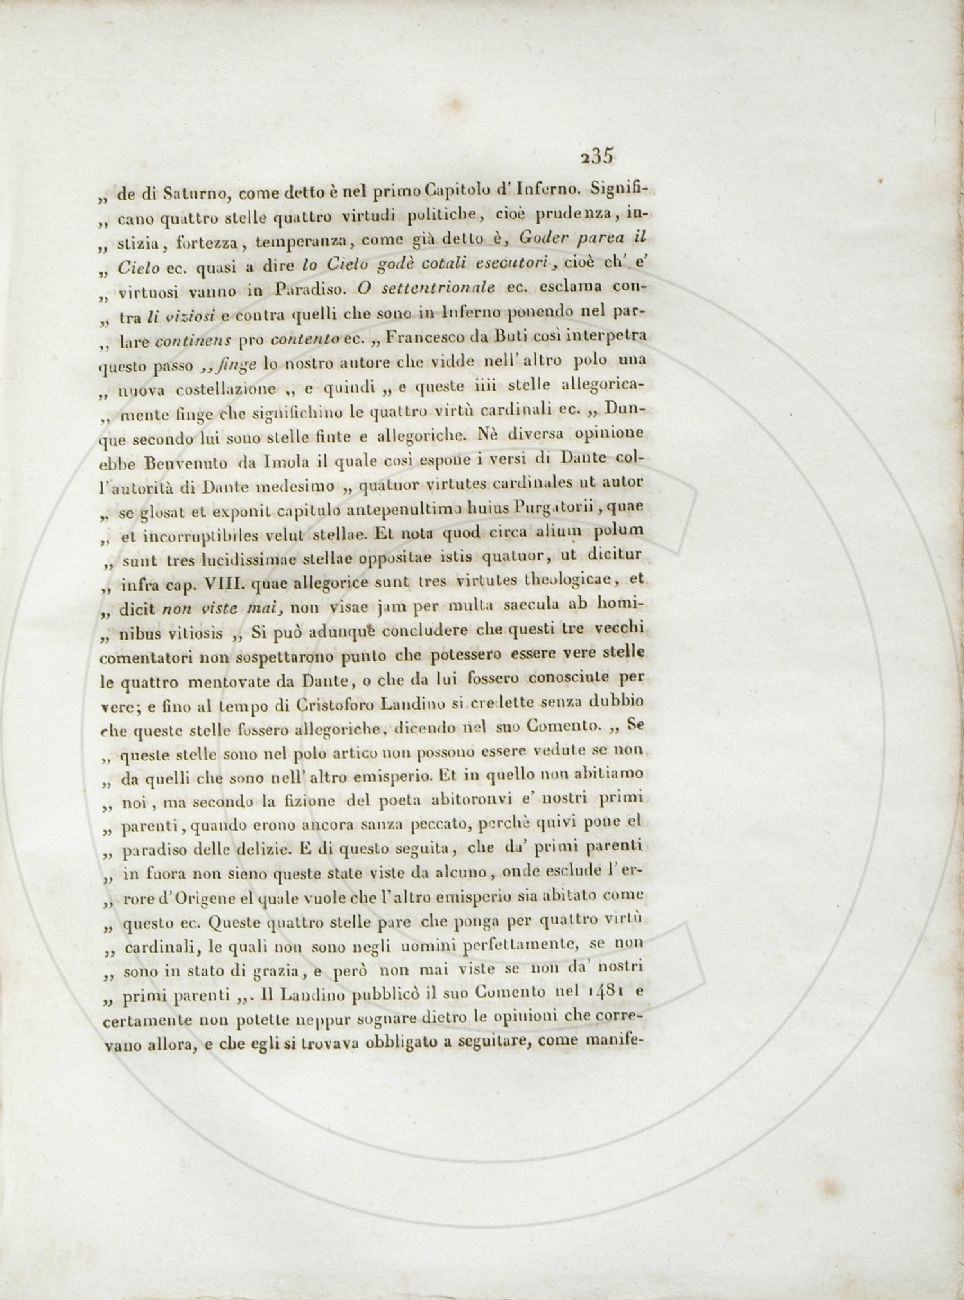 235
„ de di Saturno, come detto è nel primo Capitolo d'Inferno. Signifi-
„ cano quattro stelle quattro virtudi politiche, cioè prudenza, iu-
„ stizia, fortezza, temperanza, come già detto è, Goder parea il
„ Cielo ec. quasi a dire lo Cielo godè cotali esecutori, cioè ch' e'
„ virtuosi vanno in Paradiso. O settentrionale ec. esclama con-
„ tra li viziosi e contra quelli che sono in Inferno ponendo nel par-
„ lare continens pro contento ec. „ Francesco da Buti così interpetra
questo passo „ finge lo nostro autore che vidde nell' altro polo una
„ nuova costellazione „ e quindi „ e queste iiii stelle allegorica-
„ mente finge che significhino le quattro virtù cardinali ec. „ Dun-
que secondo lui sono stelle finte e allegoriche. Nè diversa opinione
ebbe Benvenuto da Imola il quale così espone i versi di Dante col-
l'autorità di Dante medesimo „ quatuor virtutes cardinales ut autor
„ se glosat et exponit capitulo antepenultimo huius Purgatorii, quae
„ et incorruptibiles velut stellae. Et nota quod circa alium polum
„ sunt tres lucidissimae stellae oppositae istis quatuor, ut dicitur
„ infra cap. VIII. quae allegorice sunt tres virtutes theologicae, et
„ dicit non viste mai, non visae jam per multa saecula ab homi-
„ nibus vitiosis „ Si può adunque concludere che questi tre vecchi
comentatori non sospettarono punto che potessero essere vere stelle
le quattro mentovate da Dante, o che da lui fossero conosciute per
vere; e fino al tempo di Cristoforo Landino si credette senza dubbio
che queste stelle fossero allegoriche, dicendo nel suo Comento. „ Se
„ queste stelle sono nel polo artico non possono essere vedute se non
„ da quelli che sono nell' altro emisperio. Et in quello non abitiamo
„ noi, ma secondo la fizione del poeta abitoronvi e' nostri primi
„ parenti, quando erono ancora sanza peccato, perchè quivi pone el
„ paradiso delle delizie. E di questo seguita, che da' primi parenti
„ in fuora non sieno queste state viste da alcuno, onde esclude l'er-
„ rore d'Origene el quale vuole che l'altro emisperio sia abitato come
„ questo ec. Queste quattro stelle pare che ponga per quattro virtù
„ cardinali, le quali non sono negli uomini perfettamente, se non
„ sono in stato di grazia, e però non mai viste se non da' nostri
„ primi parenti „. Il Landino pubblicò il suo Comento nel 1481 e
certamente non potette neppur sognare dietro le opinioni che corre-
vano allora, e che egli si trovava obbligato a seguitare, come manife-